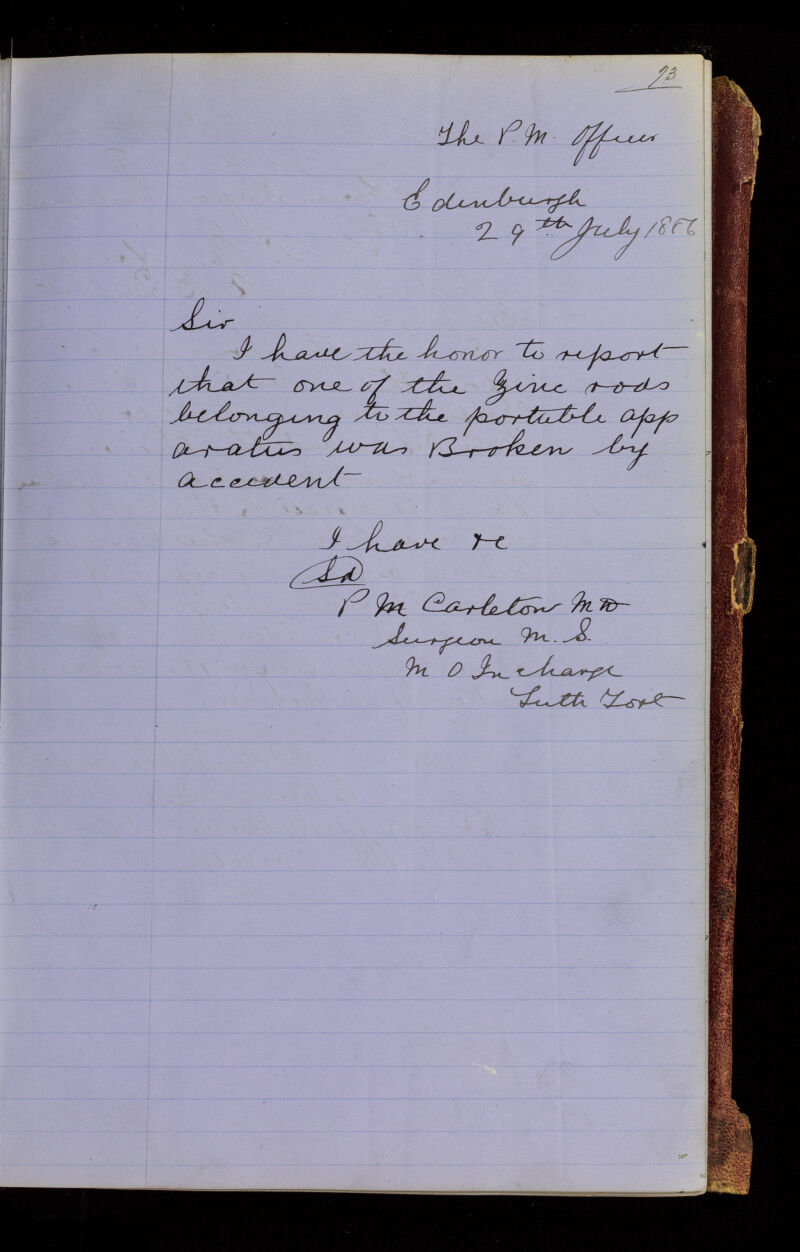 73
The P. M. Officer
Edinburgh
29th July 1886
Sir
I have the honor to report
that one of the Zinc rods
belonging to the portable app
aratus was Broken by
accident
I have &c
Sd
P M Carleton MD
Surgeon M. S.
M O In charge
Leith Fort